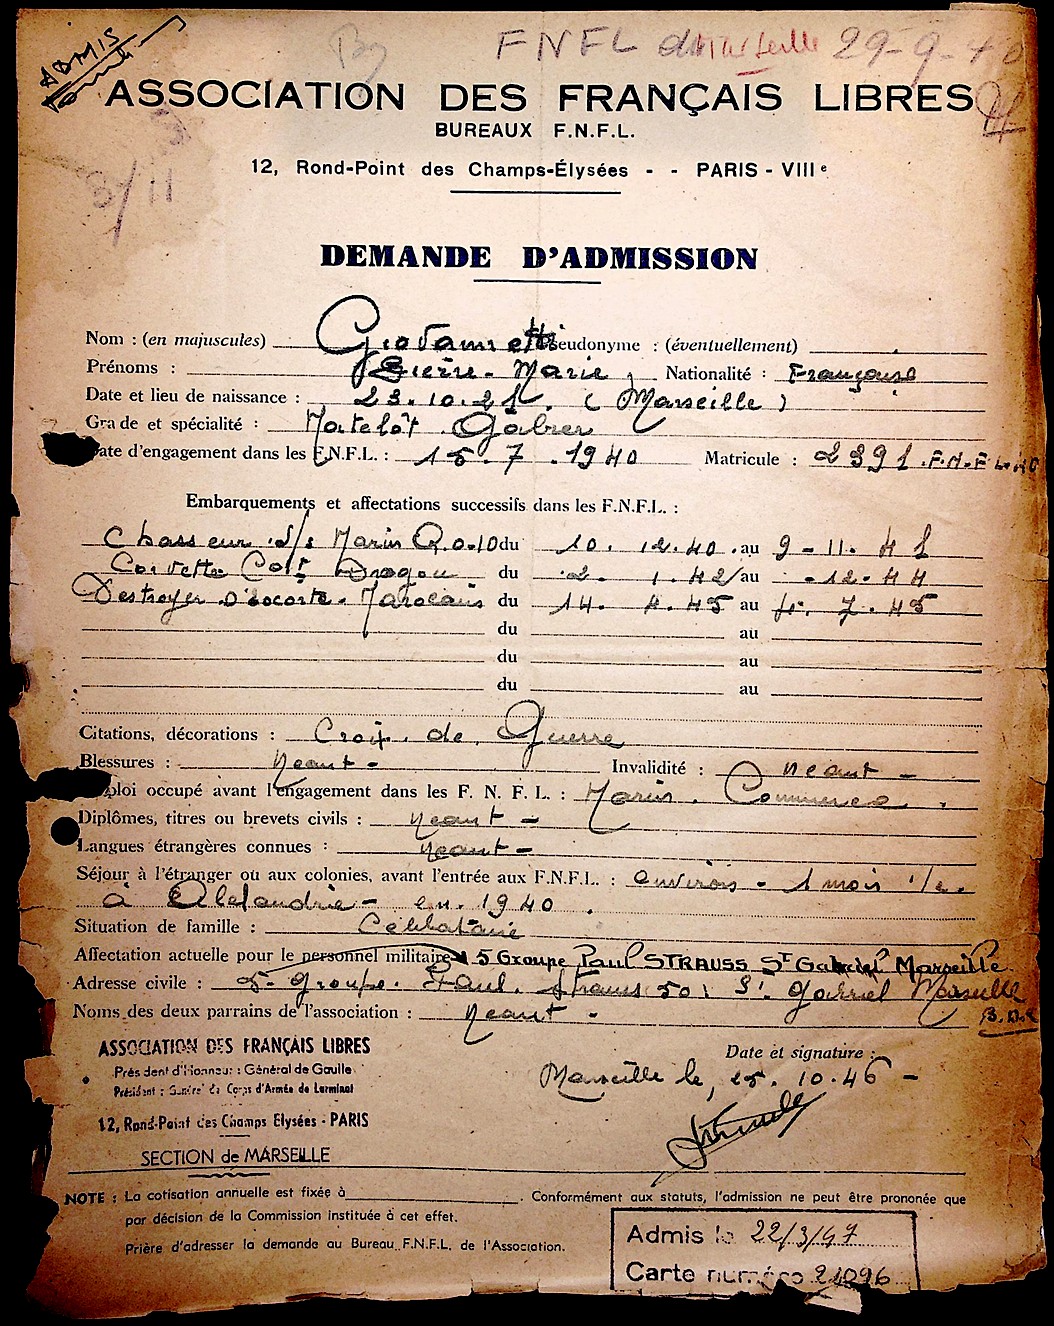 ADMIS
FNFL de Marseille 29-9-40
ASSOCIATION DES FRANÇAIS LIBRES
BUREAUX F.N.F.L.
12, Rond-Point des Champs-Élysées - - PARIS - VIIIe
3/11
DEMANDE D'ADMISSION
Nom : (en majuscules) Giovannetti Pseudonyme : (éventuellement)
Prénoms : Pierre-Marie Nationalité : Française
Date et lieu de naissance : 23.10.21. (Marseille)
Grade et spécialité : Matelôt Gabier
Date d'engagement dans les F.N.F.L. : 15.7.1940 Matricule : 2391.F.N.F.L.40
Embarquements et affectations successifs dans les F.N.F.L. :
Chasseur s/s Marin Q.0.10 du 10.12.40. au 9-11.41
Corvette Cdt Drogou du 2.1.42 au -12-44
Destroyer D'éscorte. Marocain du 14.4.45 au 7.45
du au
du au
du au
Citations, décorations : Croix. de. Guerre
Blessures : Neant - Invalidité : neant -
Emploi occupé avant l'engagement dans les F. N. F. L. : Marin. Commerce.
Diplômes, titres ou brevets civils : neant -
Langues étrangères connues : neant -
Séjour à l'étranger où aux colonies, avant l'entrée aux F.N.F.L. : environ - 1 mois 1/2.
à Alexandrie - en. 1940.
Situation de famille : Célibataire
Affectation actuelle pour le personnel militaire 5 Groupe Paul STRAUSS St Gabriel Marseille
Adresse civile : 5. groupe. Paul. Strauss St. Gabriel Marseille
Noms des deux parrains de l'association : Neant - B.D.R
ASSOCIATION DES FRANÇAIS LIBRES
Président d'Honneur : Général de Gaulle
Président : Général de Corps d'Armée de Larminat
12, Rond-Point des Champs Elysées - PARIS
SECTION de MARSEILLE
Date et signature :
Marseille le, 25.10.46 -
NOTE : La cotisation annuelle est fixée à . Conformément aux statuts, l'admission ne peut être prononée que
par décision de la Commission instituée à cet effet.
Prière d'adresser la demande au Bureau F.N.F.L. de l'Association.
Admis le 22/3/47
Carte numéro 21096